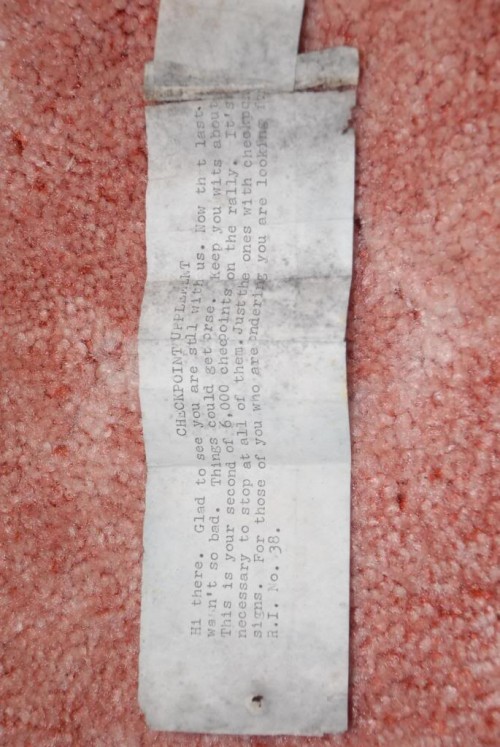 CHECKPOINT UPPLEMENT
Hi there. Glad to see you are still with us. Now th t last
wasn't so bad. Things could get orse. Keep you wits about
This is your second of 6,000 checpoints on the rally. It's
necessary to stop at all of them.Just the ones with checkpoi
signs. For those of you who are ondering you are looking
R.I. No. 38.